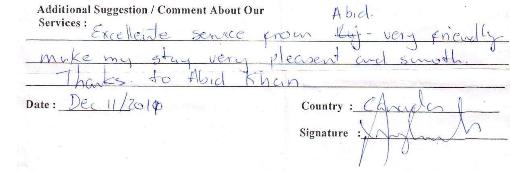 Additional Suggestion / Comment About Our Abid.
Services : Excellente service from - very friendly
make my stay very pleasent and smoth.
Thanks to Abid Khan
Date : Dec 11/2010 Country : Canada
Signature :